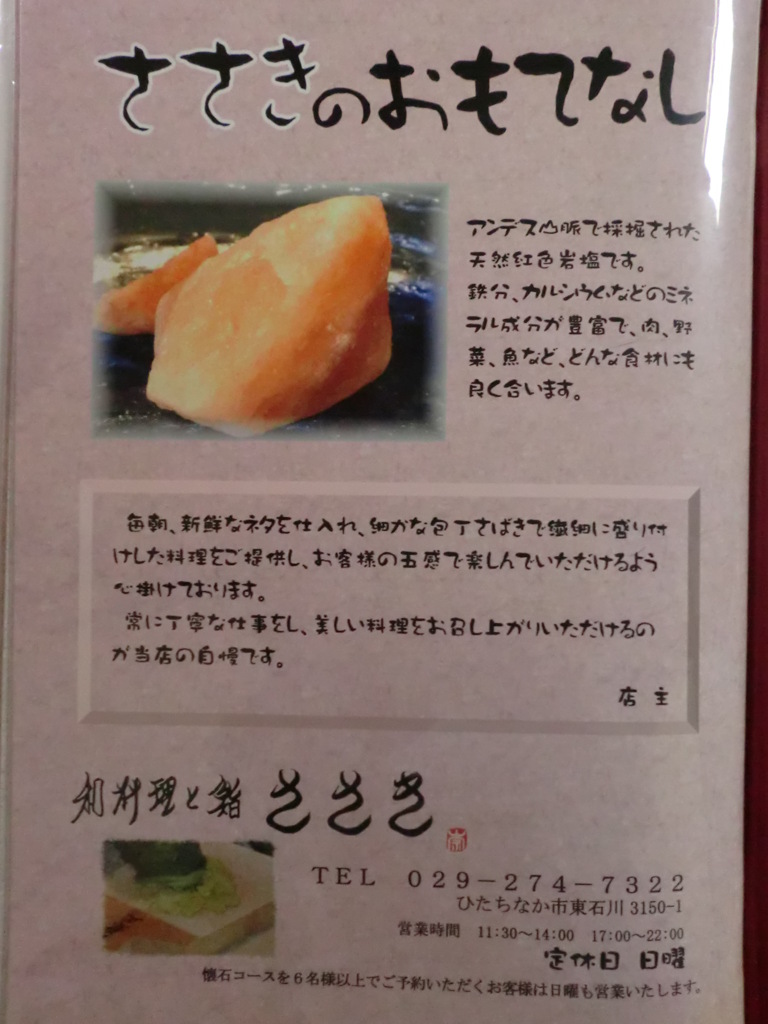 ささきのおもてなし
アンデス山脈で採掘された
天然紅色岩塩です。
鉄分、カルシウムなどのミネ
ラル成分が豊富で、肉、野
菜、魚など、どんな食材にも
良く合います。
毎朝、新鮮なネタを仕入れ、細かな包丁さばきで繊細に盛り付
けした料理をご提供し、お客様の五感で楽しんでいただけるよう
心掛けております。
常に丁寧な仕事をし、美しい料理をお召し上がりいただけるの
が当店の自慢です。
店 主
和料理と鮨 ささき
TEL 029-274-7322
ひたちなか市東石川3150-1
営業時間 11:30～14:00 17:00～22:00
定休日 日曜
懐石コースを6名様以上でご予約いただくお客様は日曜も営業いたします。